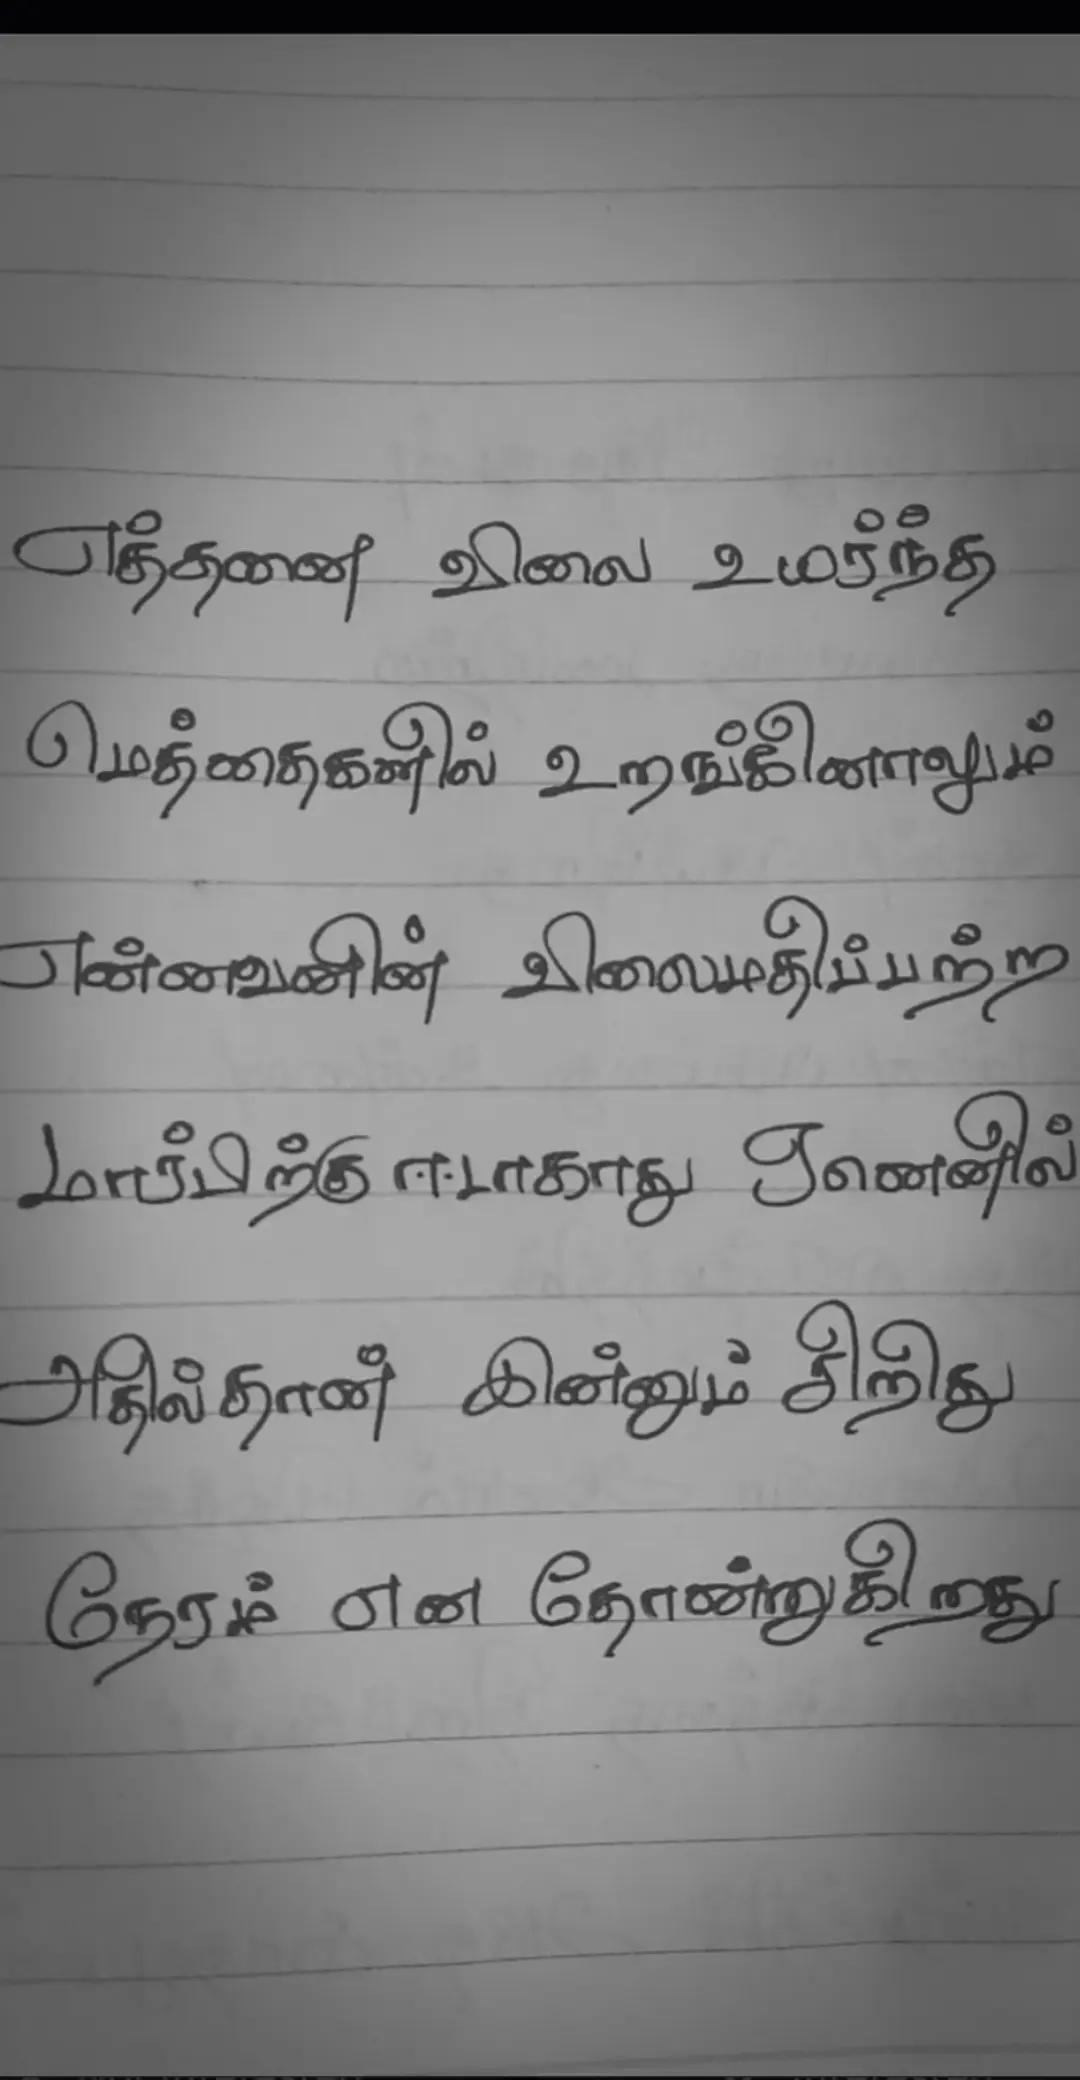 எத்தனை விலை உமர்ந்த
மெத்தைகளில் உறங்கினாலும்
என்னவனின் விலைமதிப்பற்ற
மார்பிற்கு ஈடாகாது ஏனெனில்
அதில்தான் இன்னும் சிறிது
நேரம் என தோன்றுகிறது